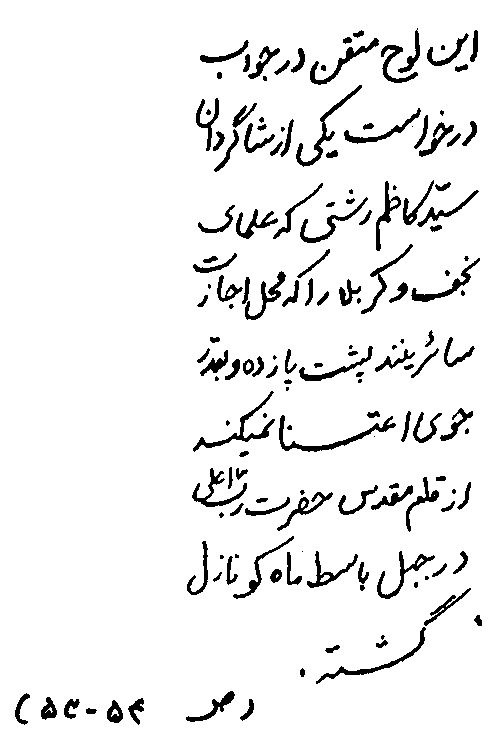 این لوح متقن در جواب
درخواست یکی از شاگردان
سیّد کاظم رشتی که علمای
نجف و کربلا را که محل اجازت
سائرینند پشت پا زده و بقدر
جوی اعتنا نمیکند
از قلم مقدس حضرت ربّ اعلی
در جبل باسط ماه کو نازل
گشته.
(ص ۵۴-۵۳)